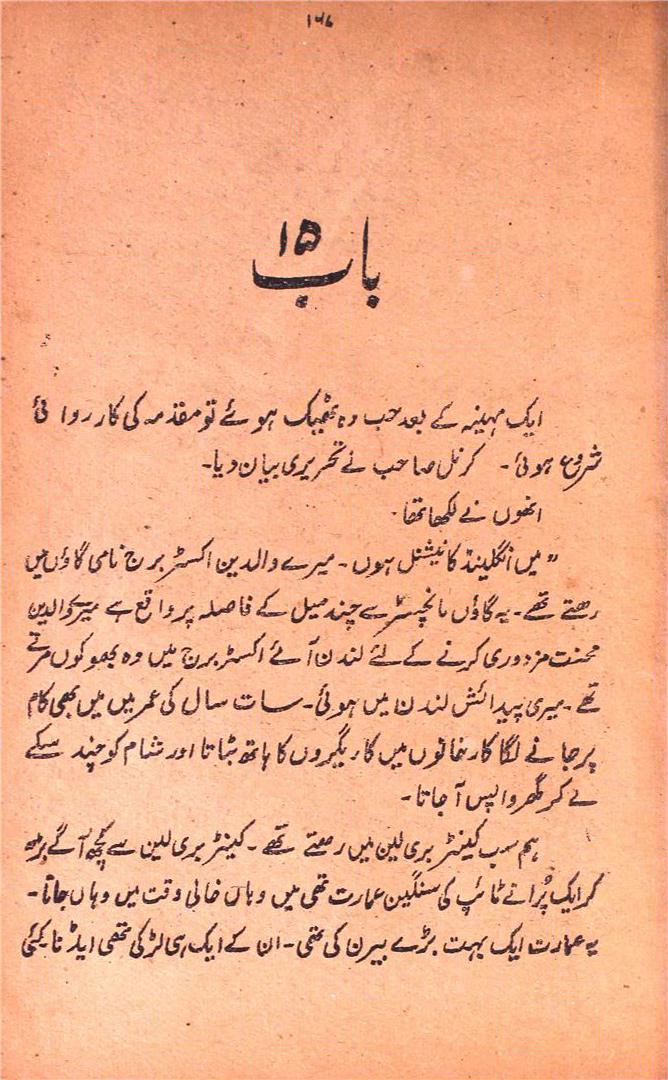 ۱۴۶
باب ۱۵
ایک مہینہ کے بعد جب وہ ٹھیک ہوئے تو مقدمہ کی کارروائی
شروع ہوئی ۔ کرنل صاحب نے تحریری بیان دیا۔
انھوں نے لکھا تھا ۔
" میں انگلینڈ کا نیشنل ہوں ۔ میرے والدین اکسٹر برج نامی گاؤں میں
رھتے تھے ۔ یہ گاؤں مانچسٹر سے چند میل کے فاصلہ پر واقع ہے میرے والدین
محنت مزدوری کرنے کے لئے لندن آئے اکسٹر برج میں وہ بھوکوں مرتے
تھے ۔ میری پیدائش لندن میں ہوئی ۔ سات سال کی عمر میں میں بھی کام
پر جانے لگا کارخانوں میں کاریگروں کا ہاتھ بٹاتا اور شام کو چند سکے
لے کر گھر واپس آ جاتا ۔
ہم سب کینٹر بری لین میں رھتے تھے ۔ کینٹر بری لین سے کچھ آگے بڑھ
کر ایک پُرانے ٹائپ کی سنگین عمارت تھی میں وہاں خالی وقت میں وہاں جاتا ۔
یہ عمارت ایک بہت بڑے بیرن کی تھی ۔ ان کے ایک ہی لڑکی تھی ایڈنا